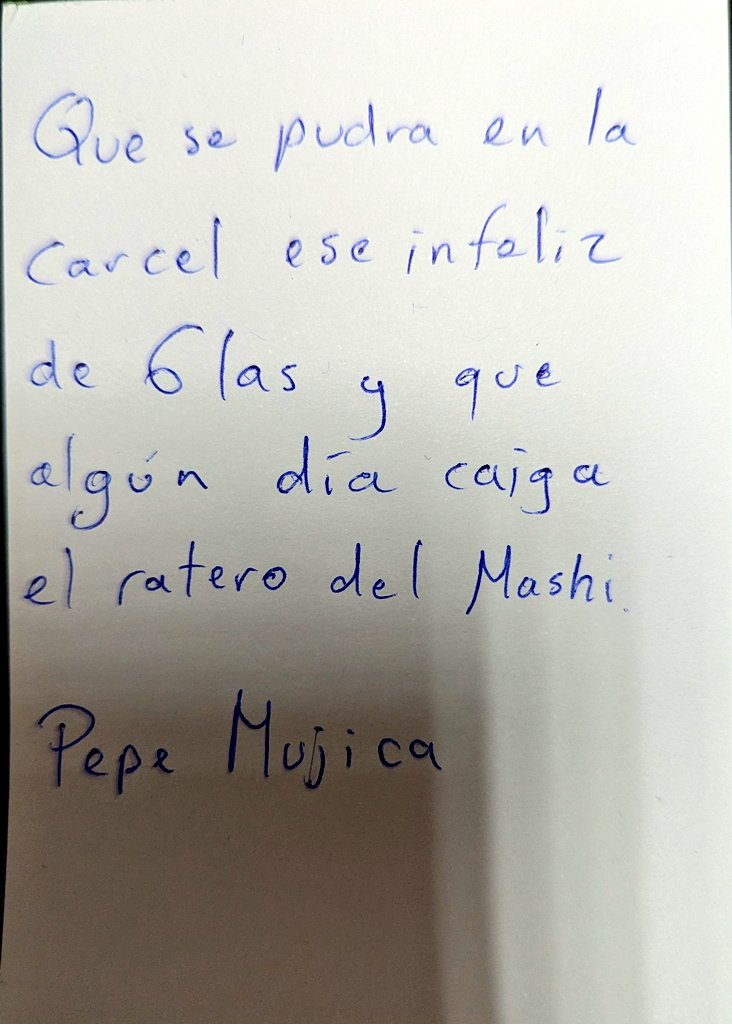 Que se pudra en la
carcel ese infeliz
de Glas y que
algún día caiga
el ratero del Mashi.
Pepe Mujica